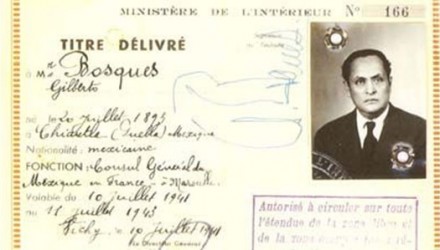 MINISTÈRE DE L'INTÉRIEUR No 166
TITRE DÉLIVRÉ
à Mr Bosques
Gilberto
né le 20 juillet 1893
à Chiautla (Puebla) Mexique
Nationalité: mexicaine
FONCTION: Consul Général du
Mexique en France - à Marseille
Valable du 10 juillet 1941
au 11 juillet 1943
Vichy, le 10 juillet 1941
Le Directeur Général
Autorisé à circuler sur toute
l'étendue de la zone libre et
de la zone